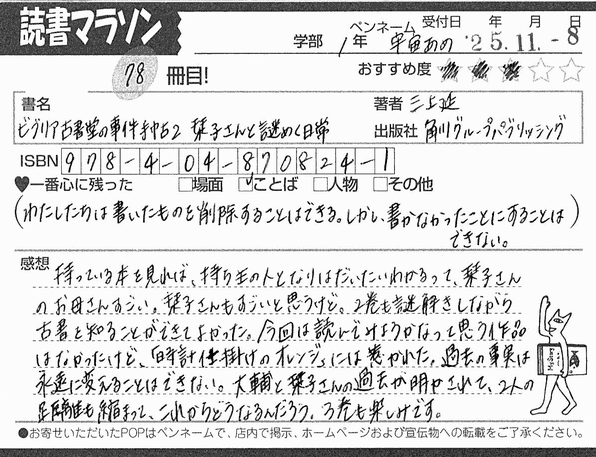 読書マラソン
ペンネーム 受付日 年 月 日
学部 1年 宇宙あめ '25.11.-8
78 冊目! おすすめ度 ★★★☆☆
書名 著者 三上延
ビブリア古書堂の事件手帖2 栞子さんと謎めく日常 出版社 角川グループパブリッシング
ISBN 978-4-04-870824-1
♥一番心に残った □場面 ☑ことば □人物 □その他
(わたしたちは書いたものを削除することはできる。しかし、書かなかったことにすることは
できない。)
感想
持っている本を見れば、持ち主の人となりはだいたいわかるって、栞子さん
のお母さんすごい。栞子さんもすごいと思うけど。2巻も謎解きしながら
古書を知ることができてよかった。今回は読んでみようかなって思う作品
はなかったけど、「時計仕掛けのオレンジ」には惹かれた。過去の事実は
永遠に変えることはできない。大輔と栞子さんの過去が明かされて、2人の
距離も縮まって、これからどうなるんだろう。3巻も楽しみです。
●お寄せいただいたPOPはペンネームで、店内で掲示、ホームページおよび宣伝物への転載をご了承ください。